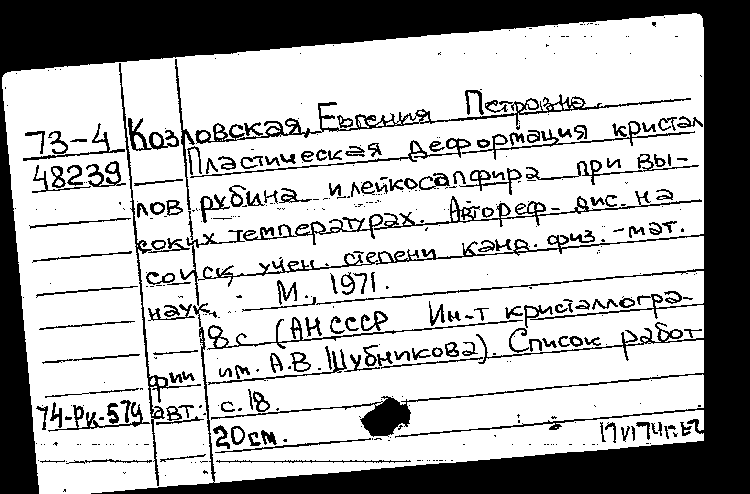 73-4 Козловская, Евгения Петровна.
48239 Пластическая деформация кристал
лов рубина и лейкосапфира при вы-
соких температурах. Автореф. дис. на
соиск. учен. степени канд. физ.-мат.
наук. М., 1971.
18 с (АН СССР. Ин-т кристаллогра-
фии им. А.В. Шубникова). Список работ
74-Рк-579 авт. с. 18.
20 см.